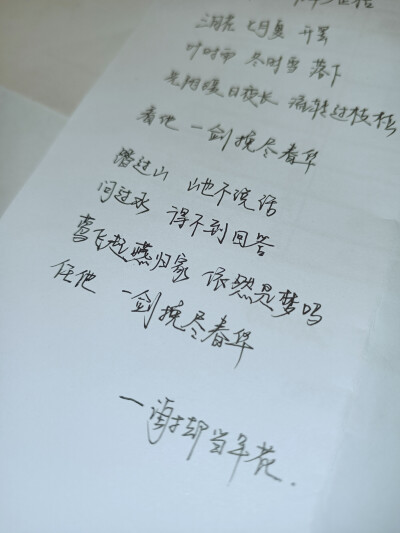 三月花 七月夏 开罢
叶时雨 尽时雪 落下
光阴暖 日夜长 流转过枝桠
看他 一剑挽尽春华
潜过山 山也不说话
问过水 得不到回答
莺飞赴燕归家 依然是梦吗
任他 一剑挽尽春华
一谢却当年花.